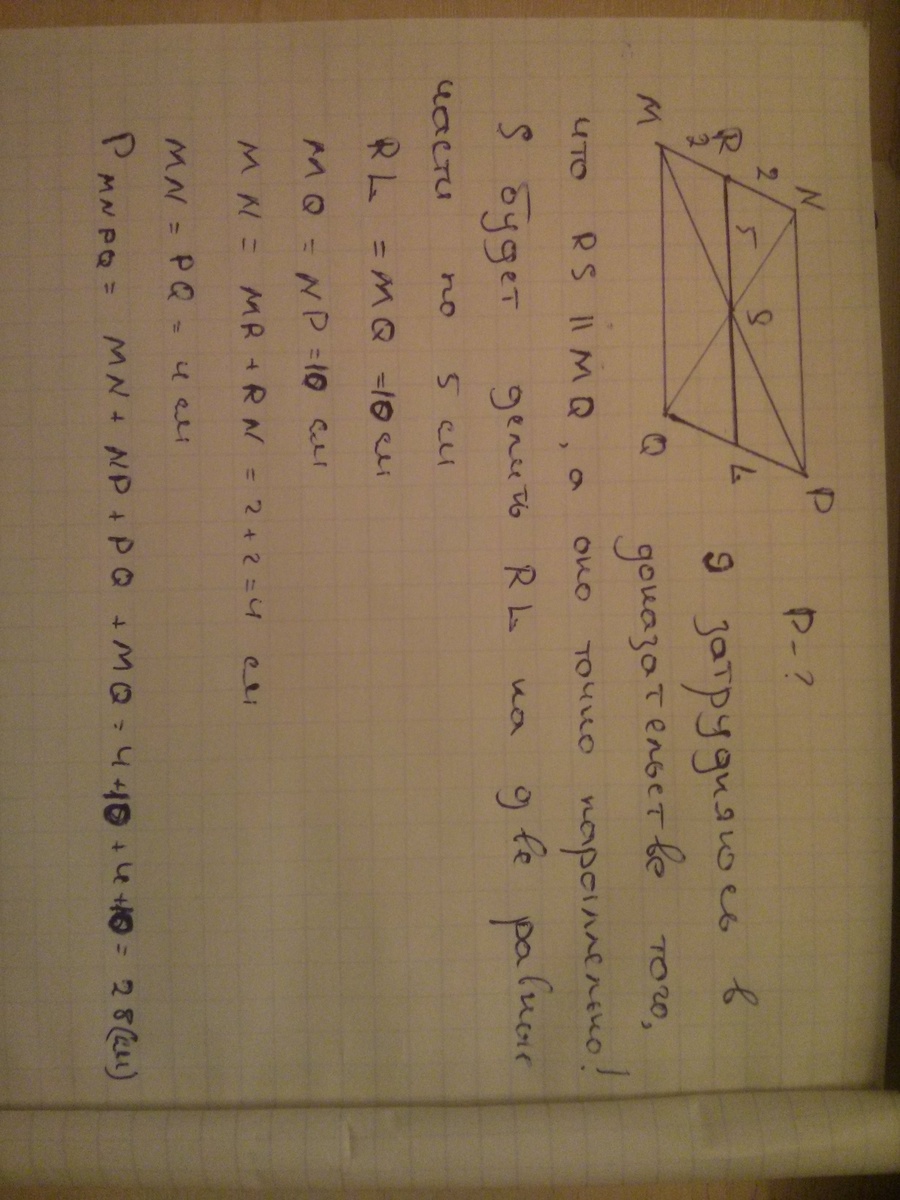 N P
R 2 2 5 S L
M Q
P - ?
я затрудняюсь в
доказательстве того,
что RS || MQ, а оно точно параллельно!
S будет делить RL на две равные
части по 5 см
RL = MQ = 10 см
MQ = NP = 10 см
MN = MR + RN = 2 + 2 = 4 см
MN = PQ = 4 см
P MNPQ = MN + NP + PQ + MQ = 4 + 10 + 4 + 10 = 28 (см)